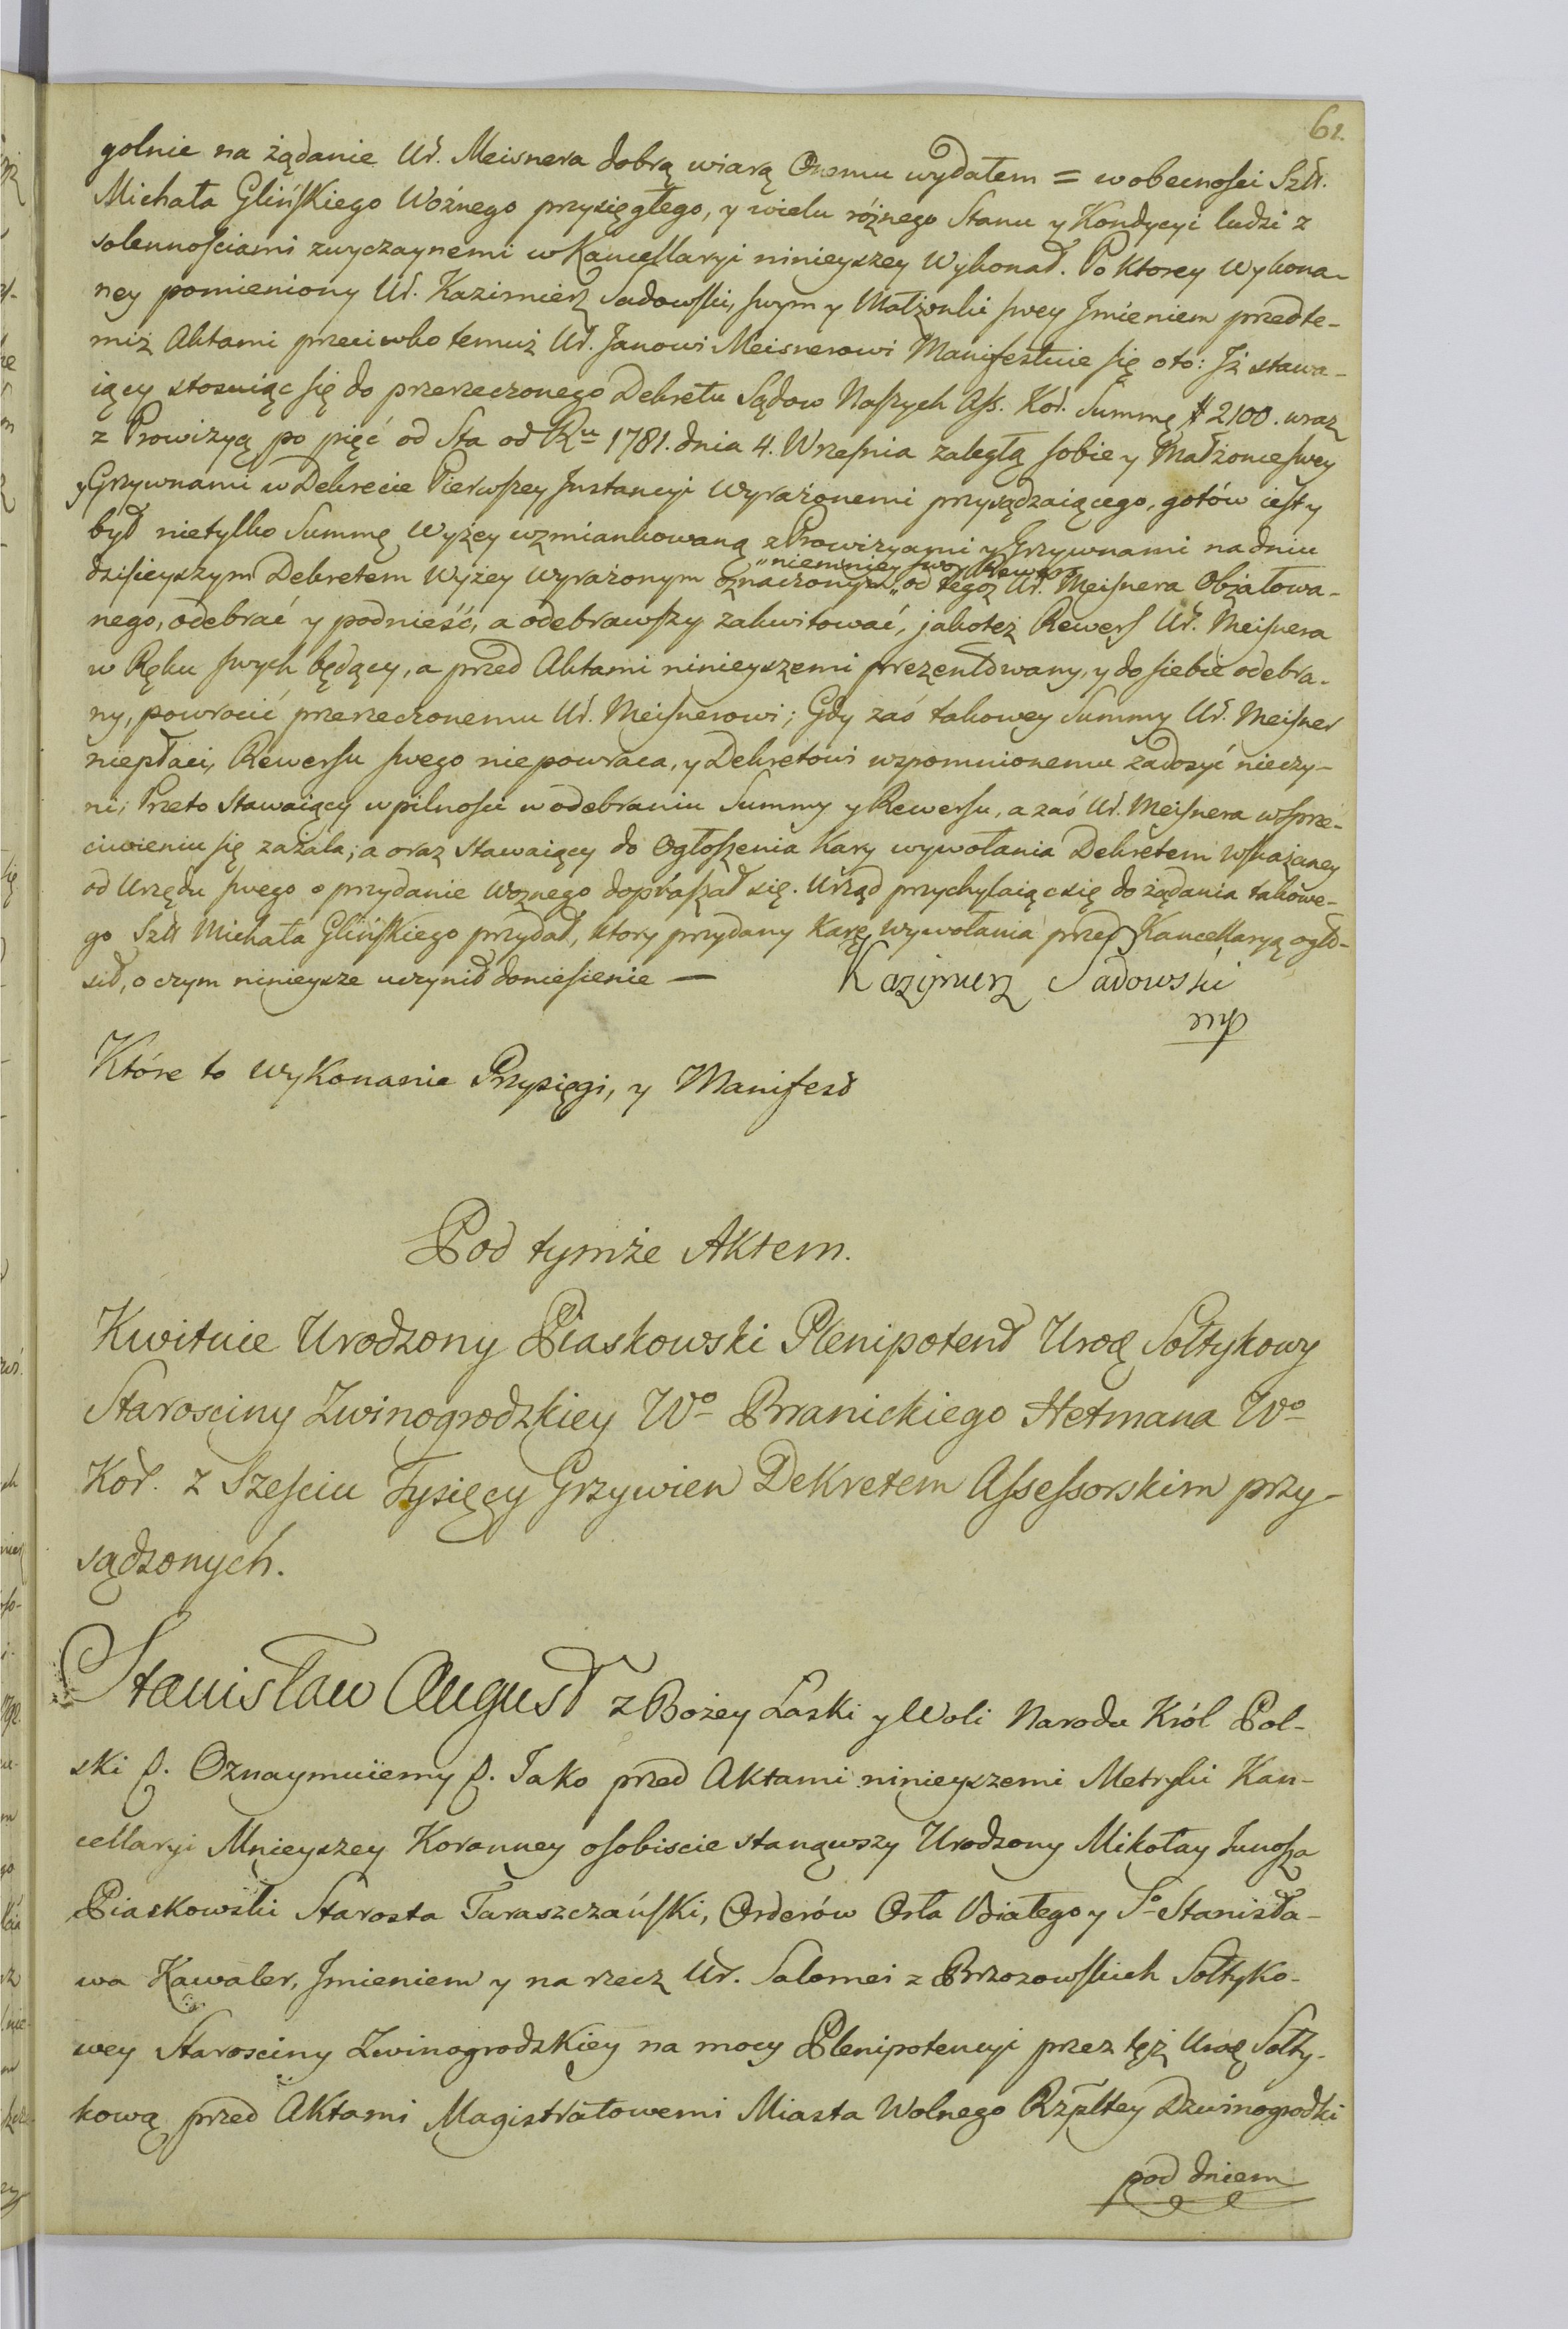 61.
golnie na żądanie Ur. Meisnera dobrą wiarą Onemu wydałem = w obecności Szl.
Michała Glińskiego Woźnego przysięgłego, y wielu różnego Stanu y Kondycyi ludzi z
solennościami zwyczaynemi w Kancellaryi ninieyszey Wykonał. Po ktorey wykona-
ney pomieniony Ur. Kazimierz Sadowski, swym y Małżonki swey Jmieniem przed te-
miż Aktami przeciwko temuż Ur. Janowi Meisnerowi Manifestuie się oto: Jż stawa-
iący stosuiąc się do przerzeczonego Dekretu Sądow Naszych Ass. Kor. Summę # 2100. wraz
z Prowizyą po pięć od Sta od Ru 1781. dnia 4. Wrzesnia zaległą sobie y Małżonce swey
y Grzywnami w Dekrecie Pierwszey Jnstancyi wyrażonemi przysądzaiącego, gotów iest y
był nietylko Summę wyżey wzmiankowaną z Prowizyami y Grzywnami na dniu
„niemniey swoy Rewers
dzisieyszym Dekretem wyżey wyrażonym oznaczonym „ od tegoż Ur. Meisnera Obżałowa-
nego, odebrać y podnieść, a odebrawszy zakwitować, jakoteż Rewers Ur. Meisnera
w Ręku swych będący, a przed Aktami ninieyszemi prezentowany, y do siebie odebra-
ny, powrocić przerzeczonemu Ur. Meisnerowi; Gdy zaś takowey Summy Ur. Meisner
niepłaci, Rewersu swego niepowraca, y Dekretowi wspomnionemu zadosyć nieczy-
ni; Przeto Stawaiący w pilności w odebraniu Summy y Rewersu, a zaś Ur. Meisnera w sprze-
ciwieniu się zażala; a oraz stawaiący do Ogłoszenia kary wywołania Dekretem wskazaney
od Urzędu swego o przydanie Woznego dopraszał się. Urząd przychylaiąc się do żądania takowe-
go Szl. Michała Glińskiego przydał, ktory przydany Karę wywołania przed Kancellaryą ogło-
sił, o czym ninieysze uczynił doniesienie — Kazimierz Sadowski
mp
Które to wykonanie Przysięgi, y Manifest
Pod tymże Aktem.
Kwituie Urodzony Piaskowski Plenipotent Urod Sołtykowy
Starosciny Zwinogrodzkiey Wo Branickiego Hetmana Wo
Kor. z Szesciu Tysięcy Grzywien Dekretem Assessorskim przy-
sądzonych.
Stanisław August z Bożey Łaski y Woli Narodu Król Pol-
ski &. Oznaymuiemy &. Jako przed Aktami ninieyszemi Metryki Kan-
cellaryi Mnieyszey Koronney osobiscie stanąwszy Urodzony Mikołay Junosza
Piaskowski Starosta Taraszczański, Orderów Orła Białego y So Stanisła-
wa Kawaler, Jmieniem y na rzecz Ur. Salomei z Brzozowskich Sołtyko-
wey Starosciny Zwinogrodzkiey na mocy Plenipotencyi przez tęż Urod Sołty-
kową przed Aktami Magistratowemi Miasta Wolnego Rzpltey Dzwinogrodki
pod dniem